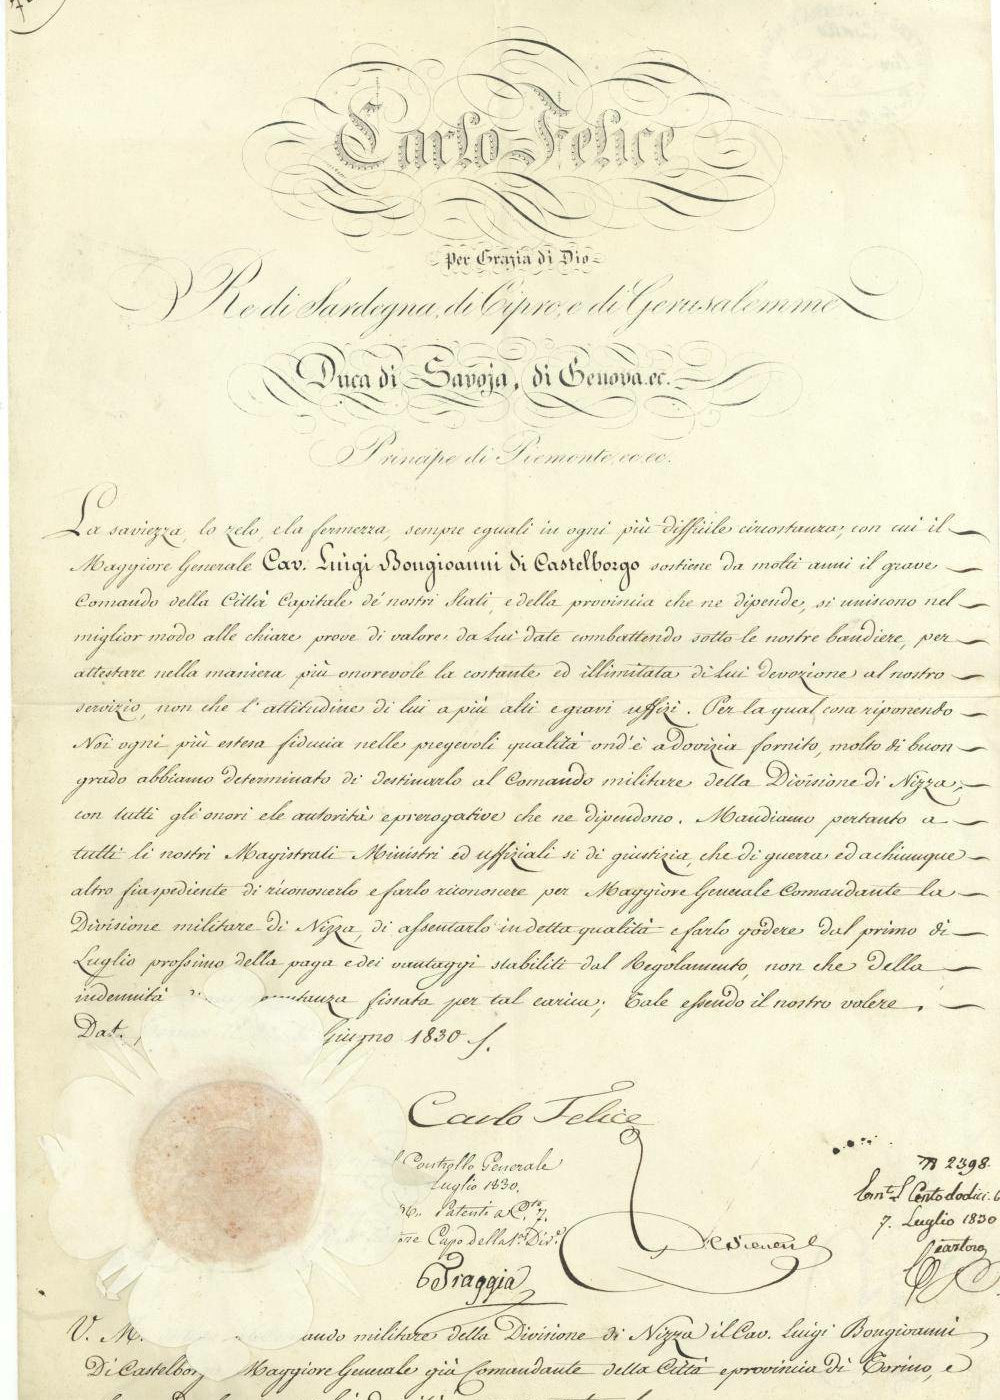 Carlo Felice
per Grazia di Dio
Re di Sardegna, di Cipro, e di Gerusalemme
Duca di Savoja, di Genova. ec.
Principe di Piemonte, ec. ec.
La saviezza, lo zelo, e la fermezza, sempre eguali in ogni più difficile circostanza, con cui il
Maggiore Generale Cav. Luigi Bongioanni di Castelborgo sostiene da molti anni il grave
Comando della Città Capitale de' nostri Stati, e della provincia che ne dipende, si uniscono nel
miglior modo alle chiare prove di valore da Lui date combattendo sotto le nostre bandiere, per
attestare nella maniera più onorevole la costante ed illimitata di Lui devozione al nostro
servizio, non che l'attitudine di lui a più alti e gravi uffizi. Per la qual cosa riponendo
Noi ogni più estesa fiducia nelle pregevoli qualità ond'è a dovizia fornito, molto di buon
grado abbiamo determinato di destinarlo al Comando militare della Divisione di Nizza,
con tutti gli onori e le autorità e prerogative che ne dipendono. Mandiamo pertanto a
tutti li nostri Magistrati Ministri ed uffiziali si di giustizia, che di guerra ed a chiunque
altro fia spediente di riconoscerlo e farlo riconoscere per Maggiore Generale Comandante la
Divisione militare di Nizza, di assentarlo in detta qualità e farlo godere dal primo di
Luglio prossimo della paga e dei vantaggi stabiliti dal Regolamento, non che della
indennità fissata per tal carica; Tale essendo il nostro volere.
Dat. Giugno 1830
Carlo Felice
Controllo Generale
Luglio 1830.
Patenti a C.te 7.
Capo della 1a Div.e
Traggia
N 2398.
Cento dodici
7. Luglio 1830
V. M. ando militare della Divisione di Nizza il Cav. Luigi Bongioanni
Di Castelborg Maggiore Generale già Comandante della Città e provincia di Torino, e